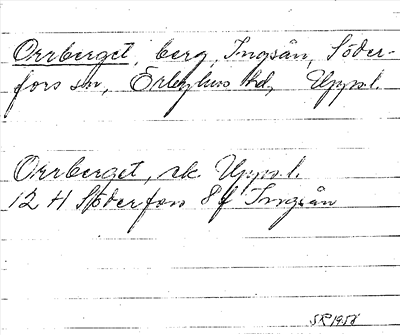 Orrberget, berg, Ingsån, Söder-
fors sn, Örbyhus hd, Upps.l.
Orrberget, ek. Upps.l.
12 H Söderfors 8 f Ingsån
SR 1958